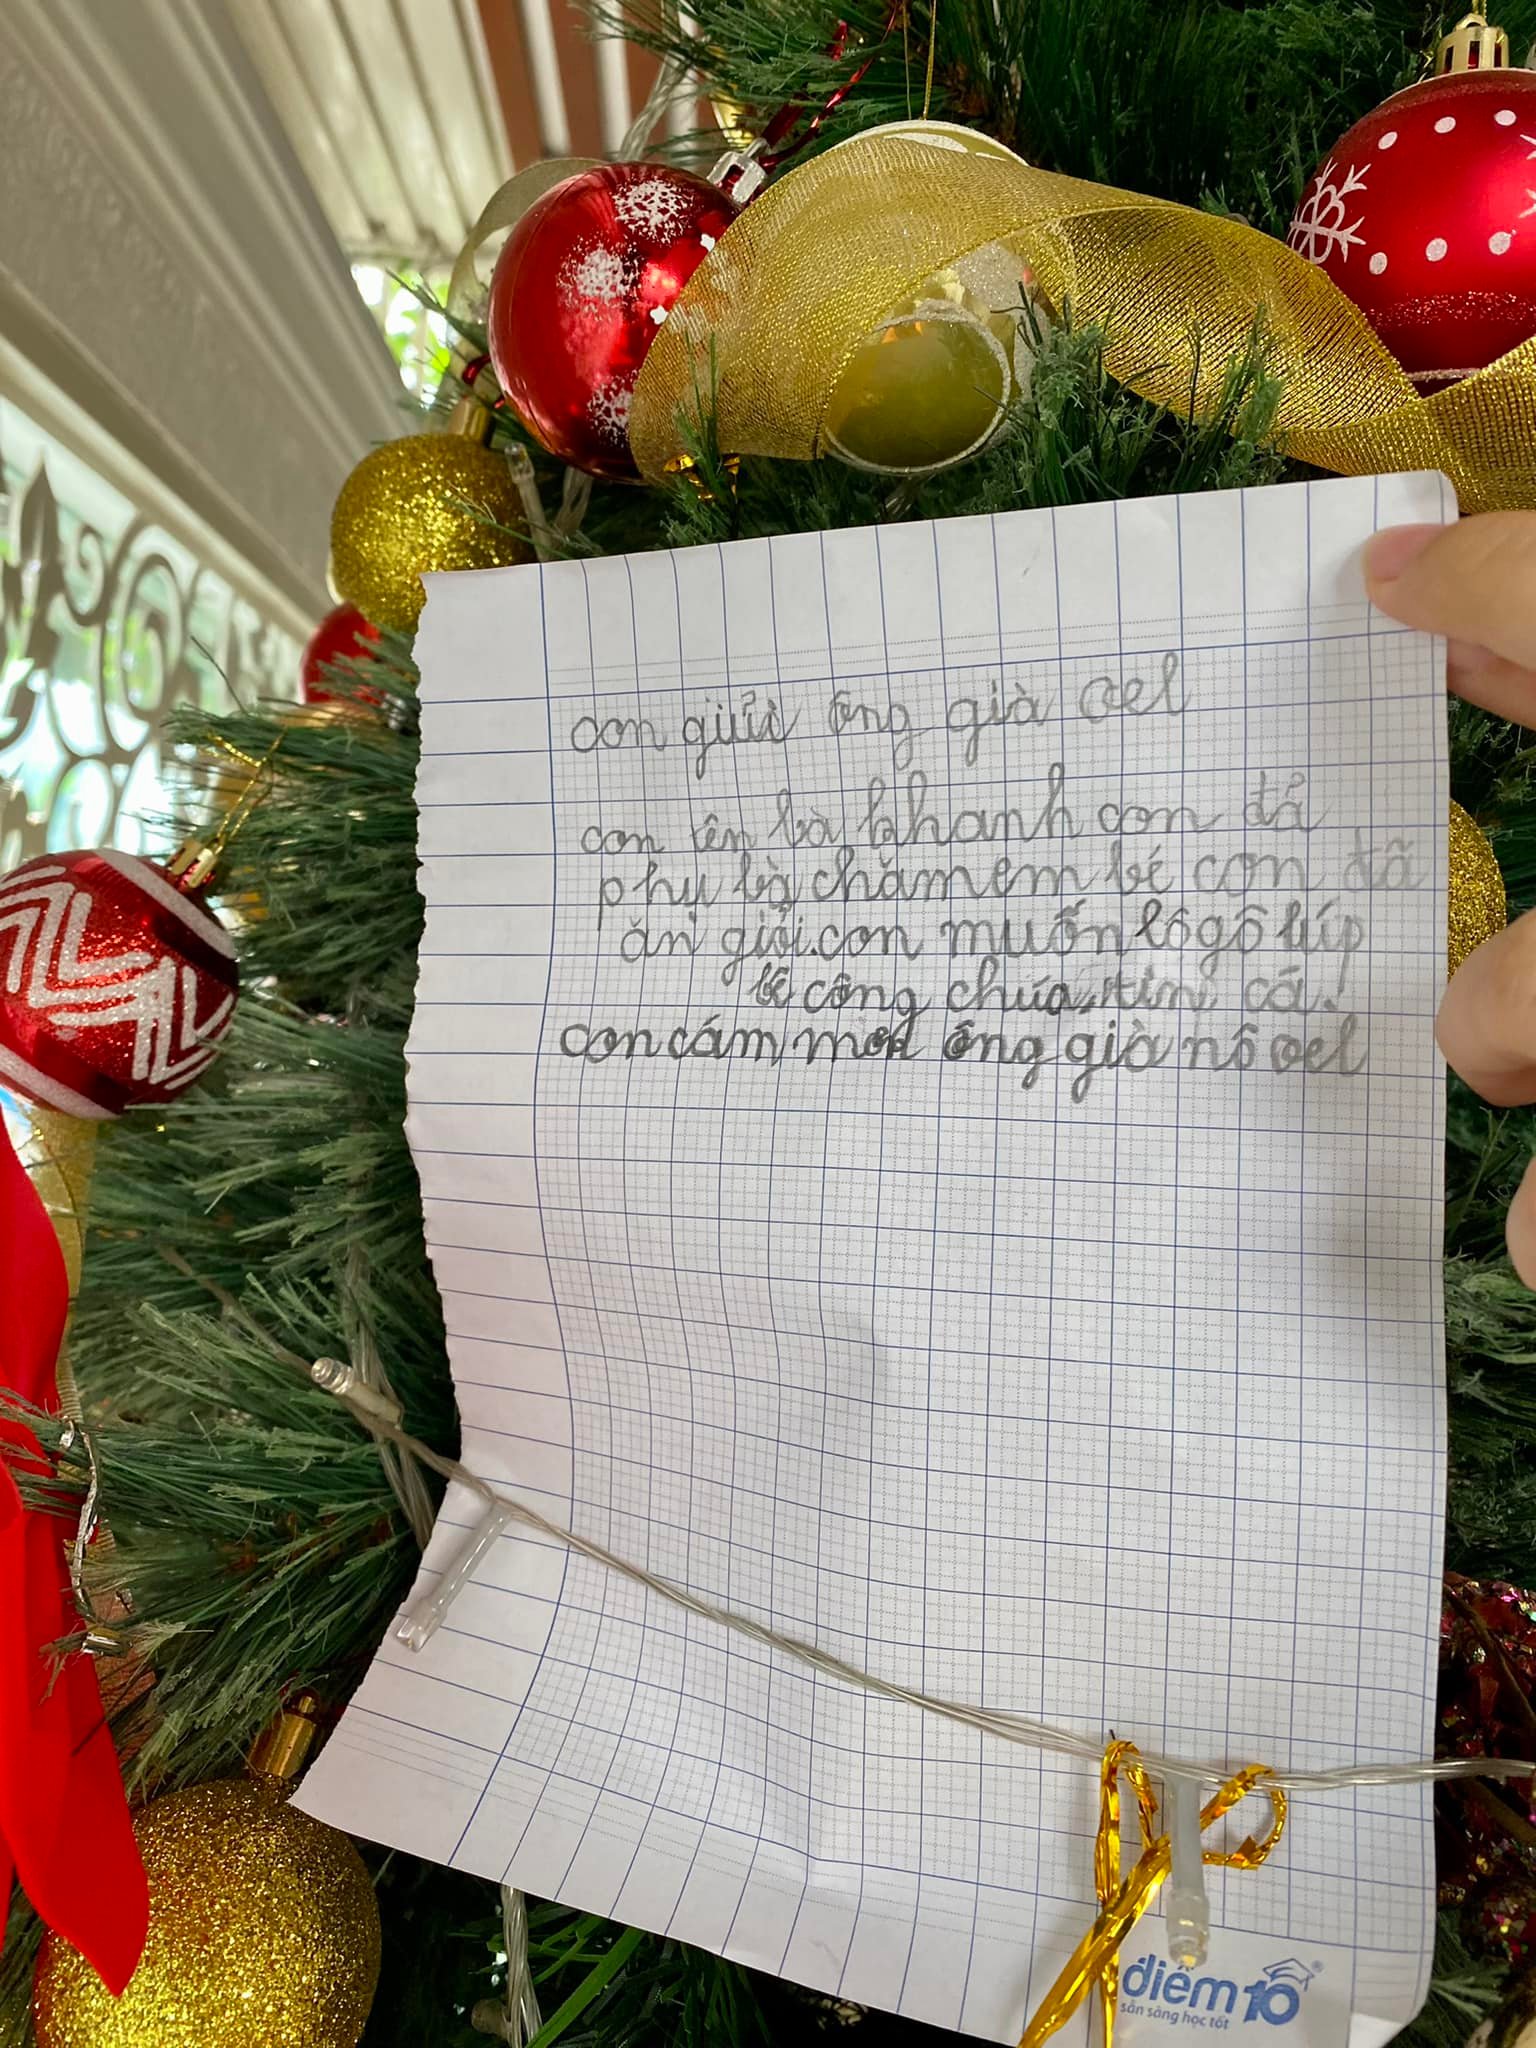 con giửi ông già oel
con tên là khanh con đả
phụ bà chăm em bé con đã
ăn giỏi. con muốn lô gô líp
bê công chúa, tim cá.
con cám mơn ông già nô oel
điểm 10
sẵn sàng học tốt